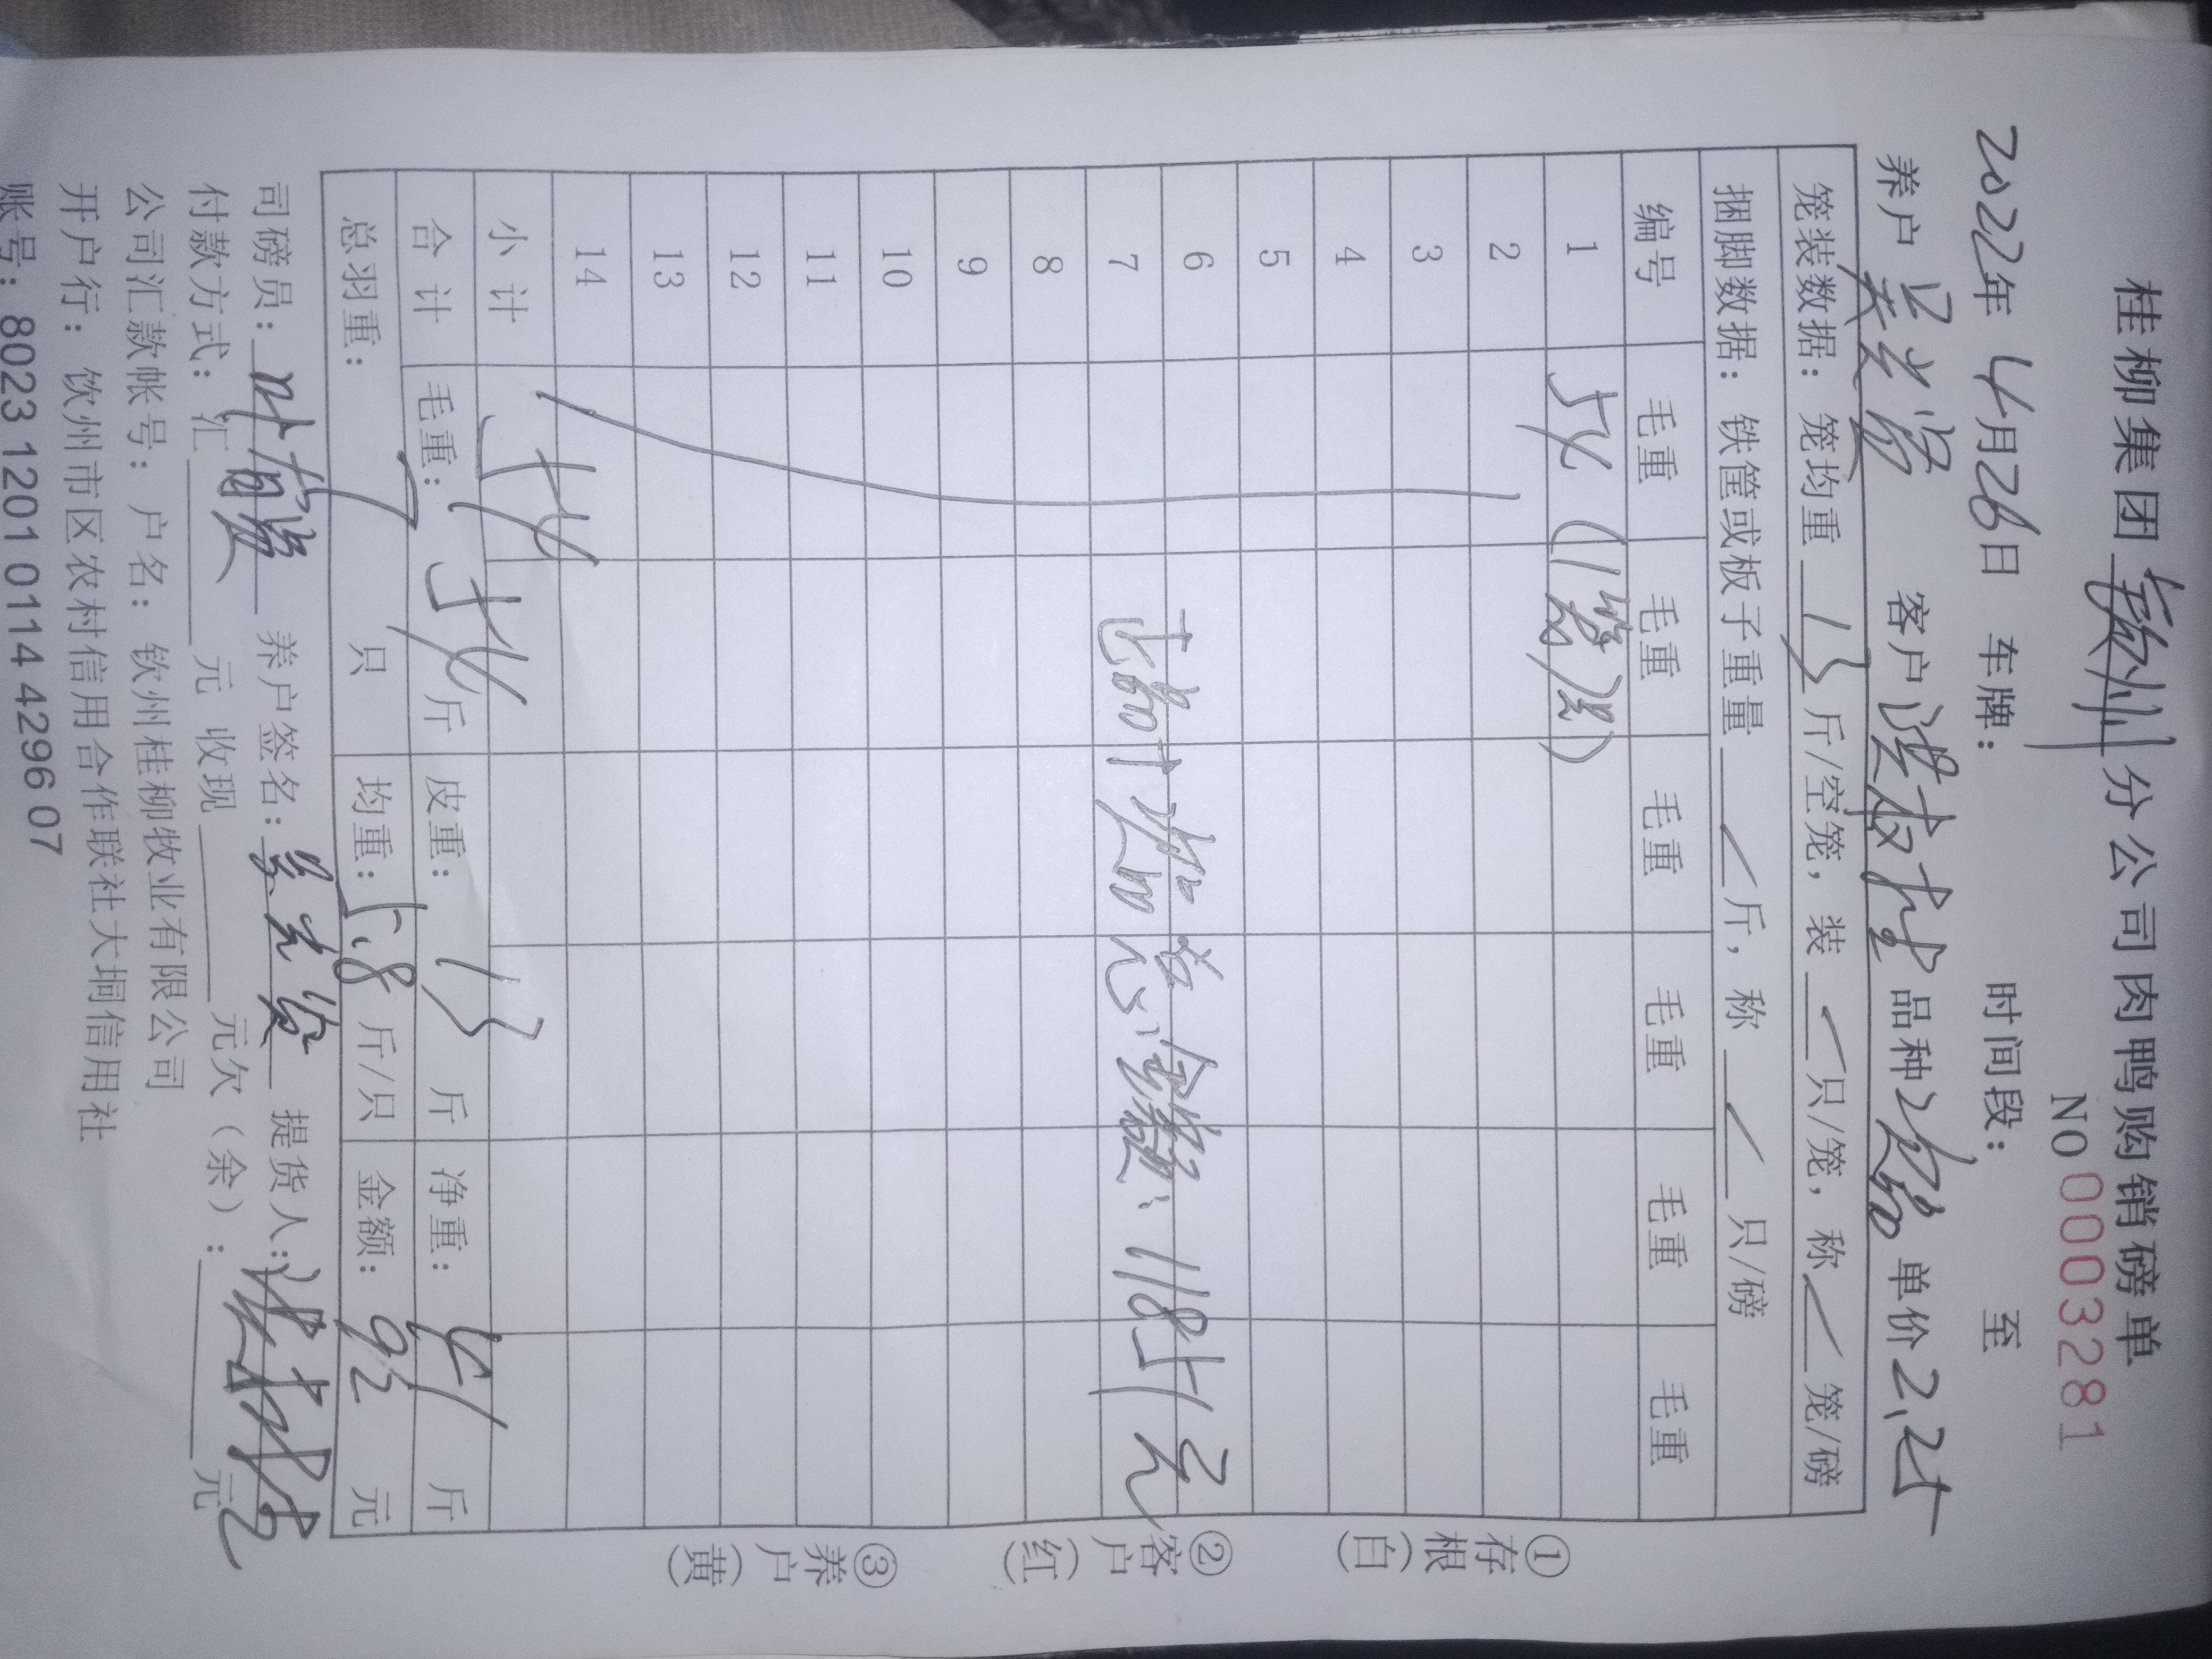 桂柳集团 钦州 分公司肉鸭购销磅单
No 0003281
2022年 4月26日 车牌： 时间段： 至
养户 客户 品种 单价 2.25
笼装数据：笼均重 13 斤/空笼，装 / 只/笼，称 / 笼/磅
捆脚数据：铁筐或板子重量 / 斤，称 / 只/磅
编号 毛重 毛重 毛重 毛重 毛重 毛重
1 54 (1笼)
2
3
4
5
6
7 总金额：11851元
8
9
10
11
12
13
14
小计 54
合计 毛重：54 斤 皮重：13 斤 净重：41 斤
总羽重：7 只 均重：5.8 斤/只 金额：92 元
①存根（白） ②客户（红） ③养户（黄）
司磅员： 养户签名： 提货人：
付款方式：汇 元 收现 元欠（余）： 元
公司汇款帐号：户名：钦州桂柳牧业有限公司
开户行：钦州市区农村信用合作联社大垌信用社
账号：8023 1201 0114 4296 07